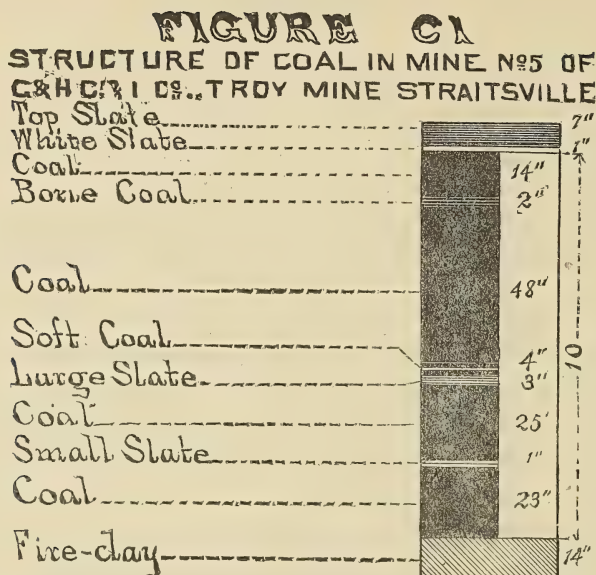 FIGURE CI
STRUCTURE OF COAL IN MINE Nº5 OF
C&H C.& I Cº., TROY MINE STRAITSVILLE
Top Slate 7"
White Slate 1"
Coal 14"
Bone Coal 2"
Coal 48"
Soft Coal 4"
Large Slate 3"
10
Coal 25'
Small Slate 1"
Coal 23"
Fire-clay 14"